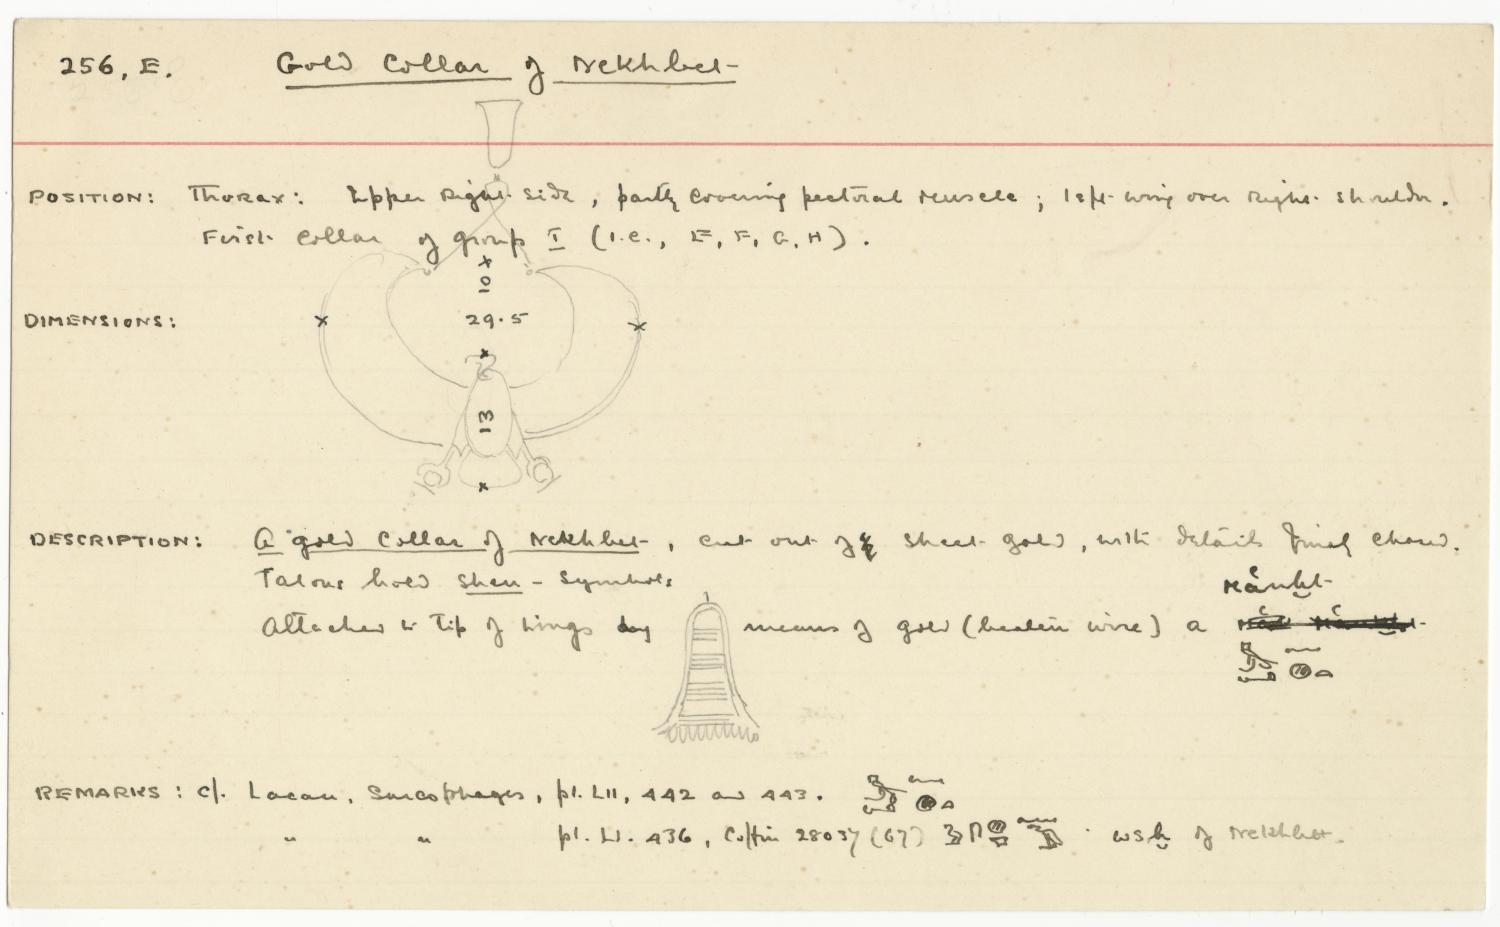 256, E. Gold Collar of Nekhbet
POSITION: Thorax: Upper right side, partly covering pectoral muscle; left wing over right shoulder.
First collar of group I (i.e., E, F, G, H).
10
DIMENSIONS: 29.5
13
DESCRIPTION: A gold collar of Nekhbet, cut out of sheet gold, with details finely chased.
Talons hold shen-symbols
mꜥnḫt
Attached to tip of wings by means of gold (beaten wire) a
REMARKS: cf. Lacau, Sarcophages, pl. LII, 442 and 443.
" " pl. LI. 436, Coffin 28037 (67) wsḫ of Nekhbet.